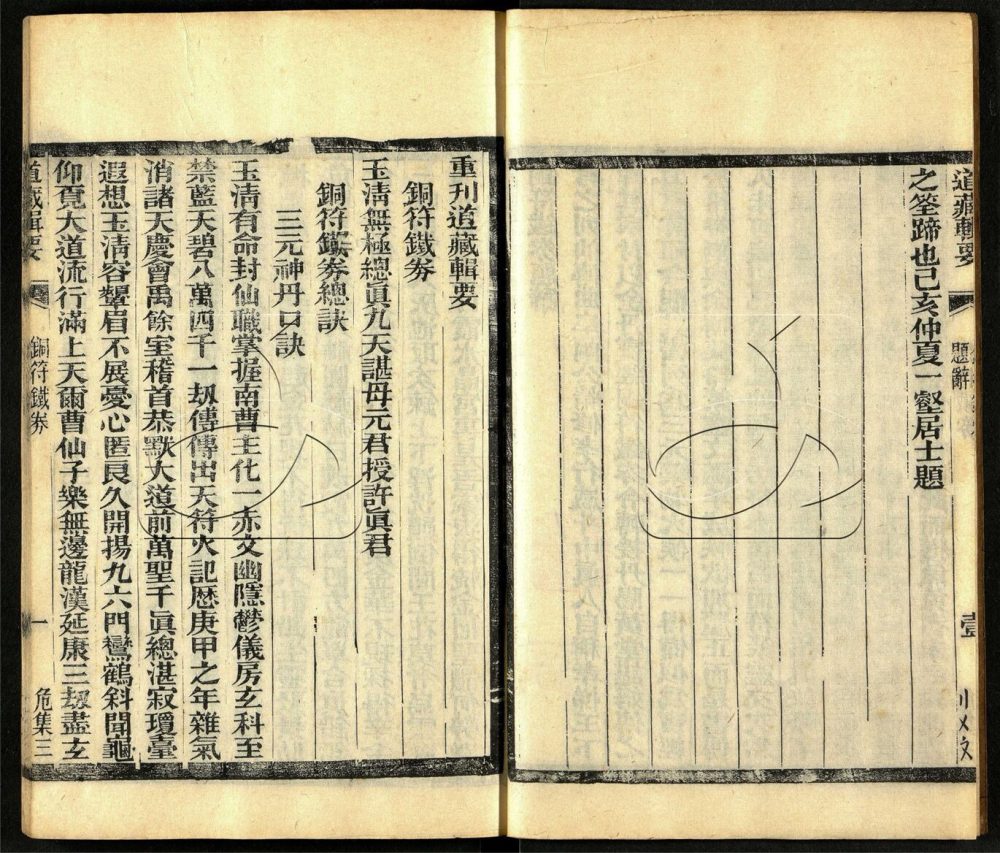 道藏輯要
題辭
壹
之筌蹄也己亥仲夏一壑居士題
重刊道藏輯要
銅符鐵券
玉淸無極總眞九天諶母元君授許眞君
銅符鐵券總訣
三元神丹口訣
玉淸有命封仙職掌握南曹主化一赤文幽隱鬱儀房玄科至
禁藍天碧八萬四千一刼傳傳出天符火記歷庚甲之年雜氣
消諸天慶會禹餘室稽首恭默大道前萬聖千眞總湛寂瓊臺
遐想玉淸容顰眉不展憂心匿良久開揚九六門鸞鶴斜聞龜
仰覓大道流行滿上天爾曹仙子樂無邊龍漢延康三刼盡玄
道藏輯要
銅符鐵券
一
危集三